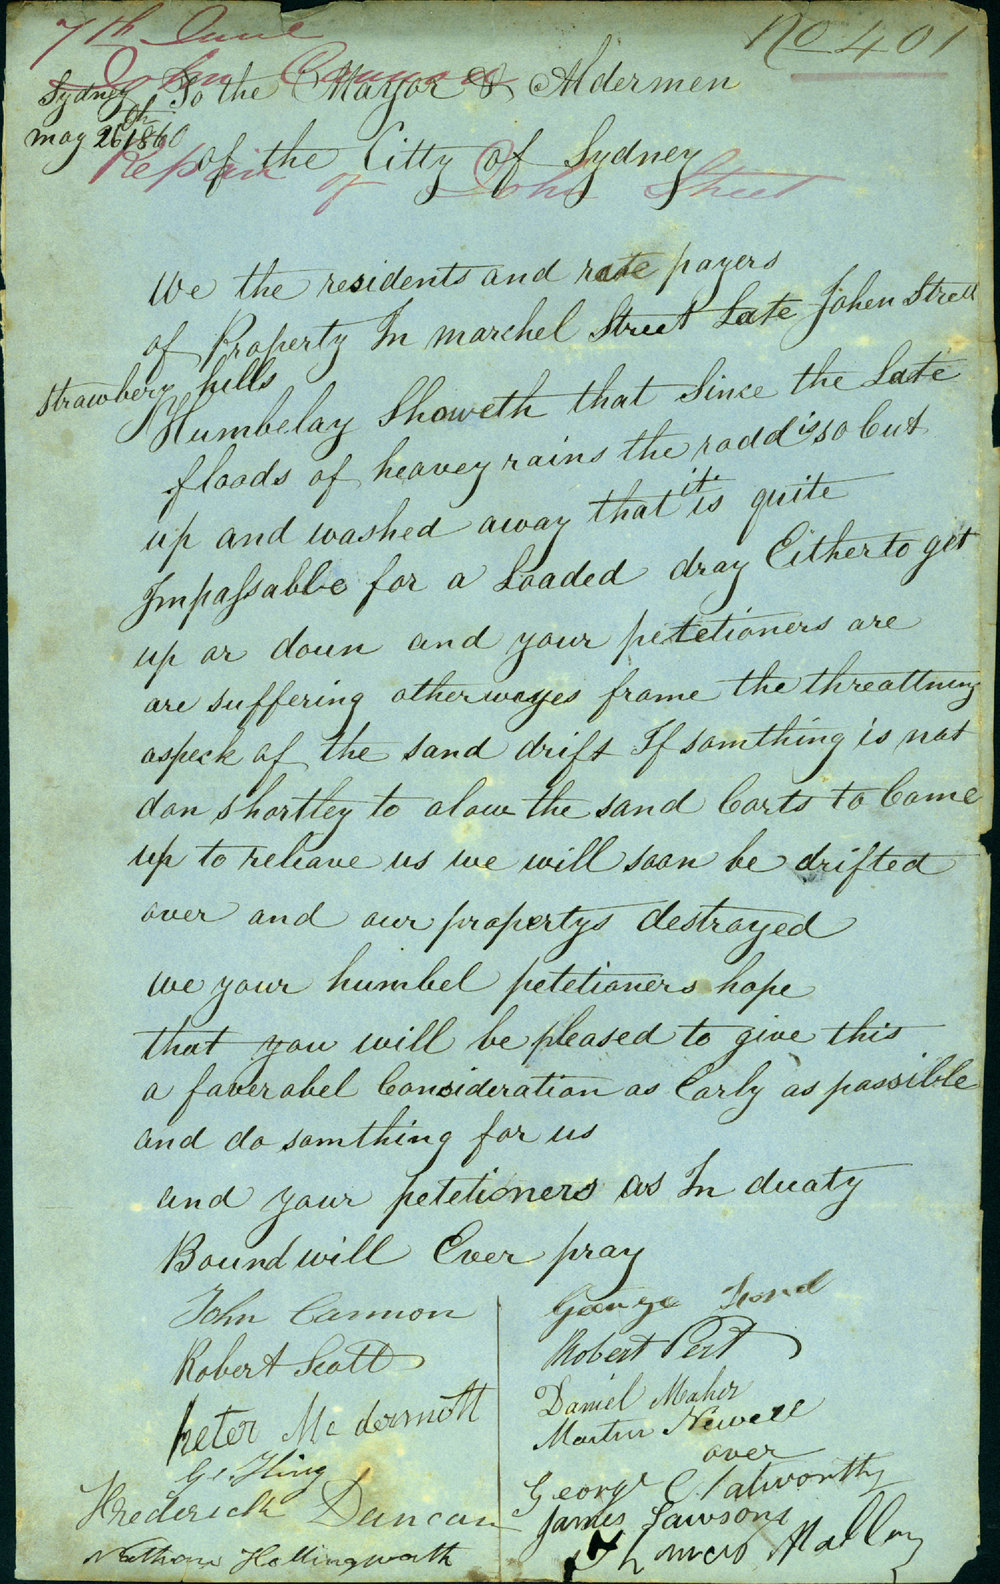 7th June No 401
John Cannon
Sydney To the Mayor & Aldermen
may 26th 1860
of the Citty of Sydney
Repair of John Street
We the residents and rate payers
of Property In marchel Street Late Johen Strett
Strawbery hills
Humbelay Showeth that Since the Late
floods of heavey rains the rodd is so Cut
up and washed away that it is quite
Impassabble for a Loaded dray Either to get
up or doun and your petetioners are
are suffering otherwayes frome the threattning
aspeck of the sand drift If somthing is not
don shortley to alow the sand Carts to Come
up to releave us we will soon be drifted
over and our propertys destroyed
we your humbel petetioners hope
that you will be pleased to give this
a faverabel Consideration as Early as possible
and do somthing for us
and your petetioners as In duaty
Bound will Ever pray
John Cannon
Robert Scott
Peter Mc dermott
Ge. King
Frederick Duncan
Nathan Hollingworth
George
Robert Pert
Daniel Maher
Martin Newell
over
George Clatworthy
James Lawsons
Thomas Malloy